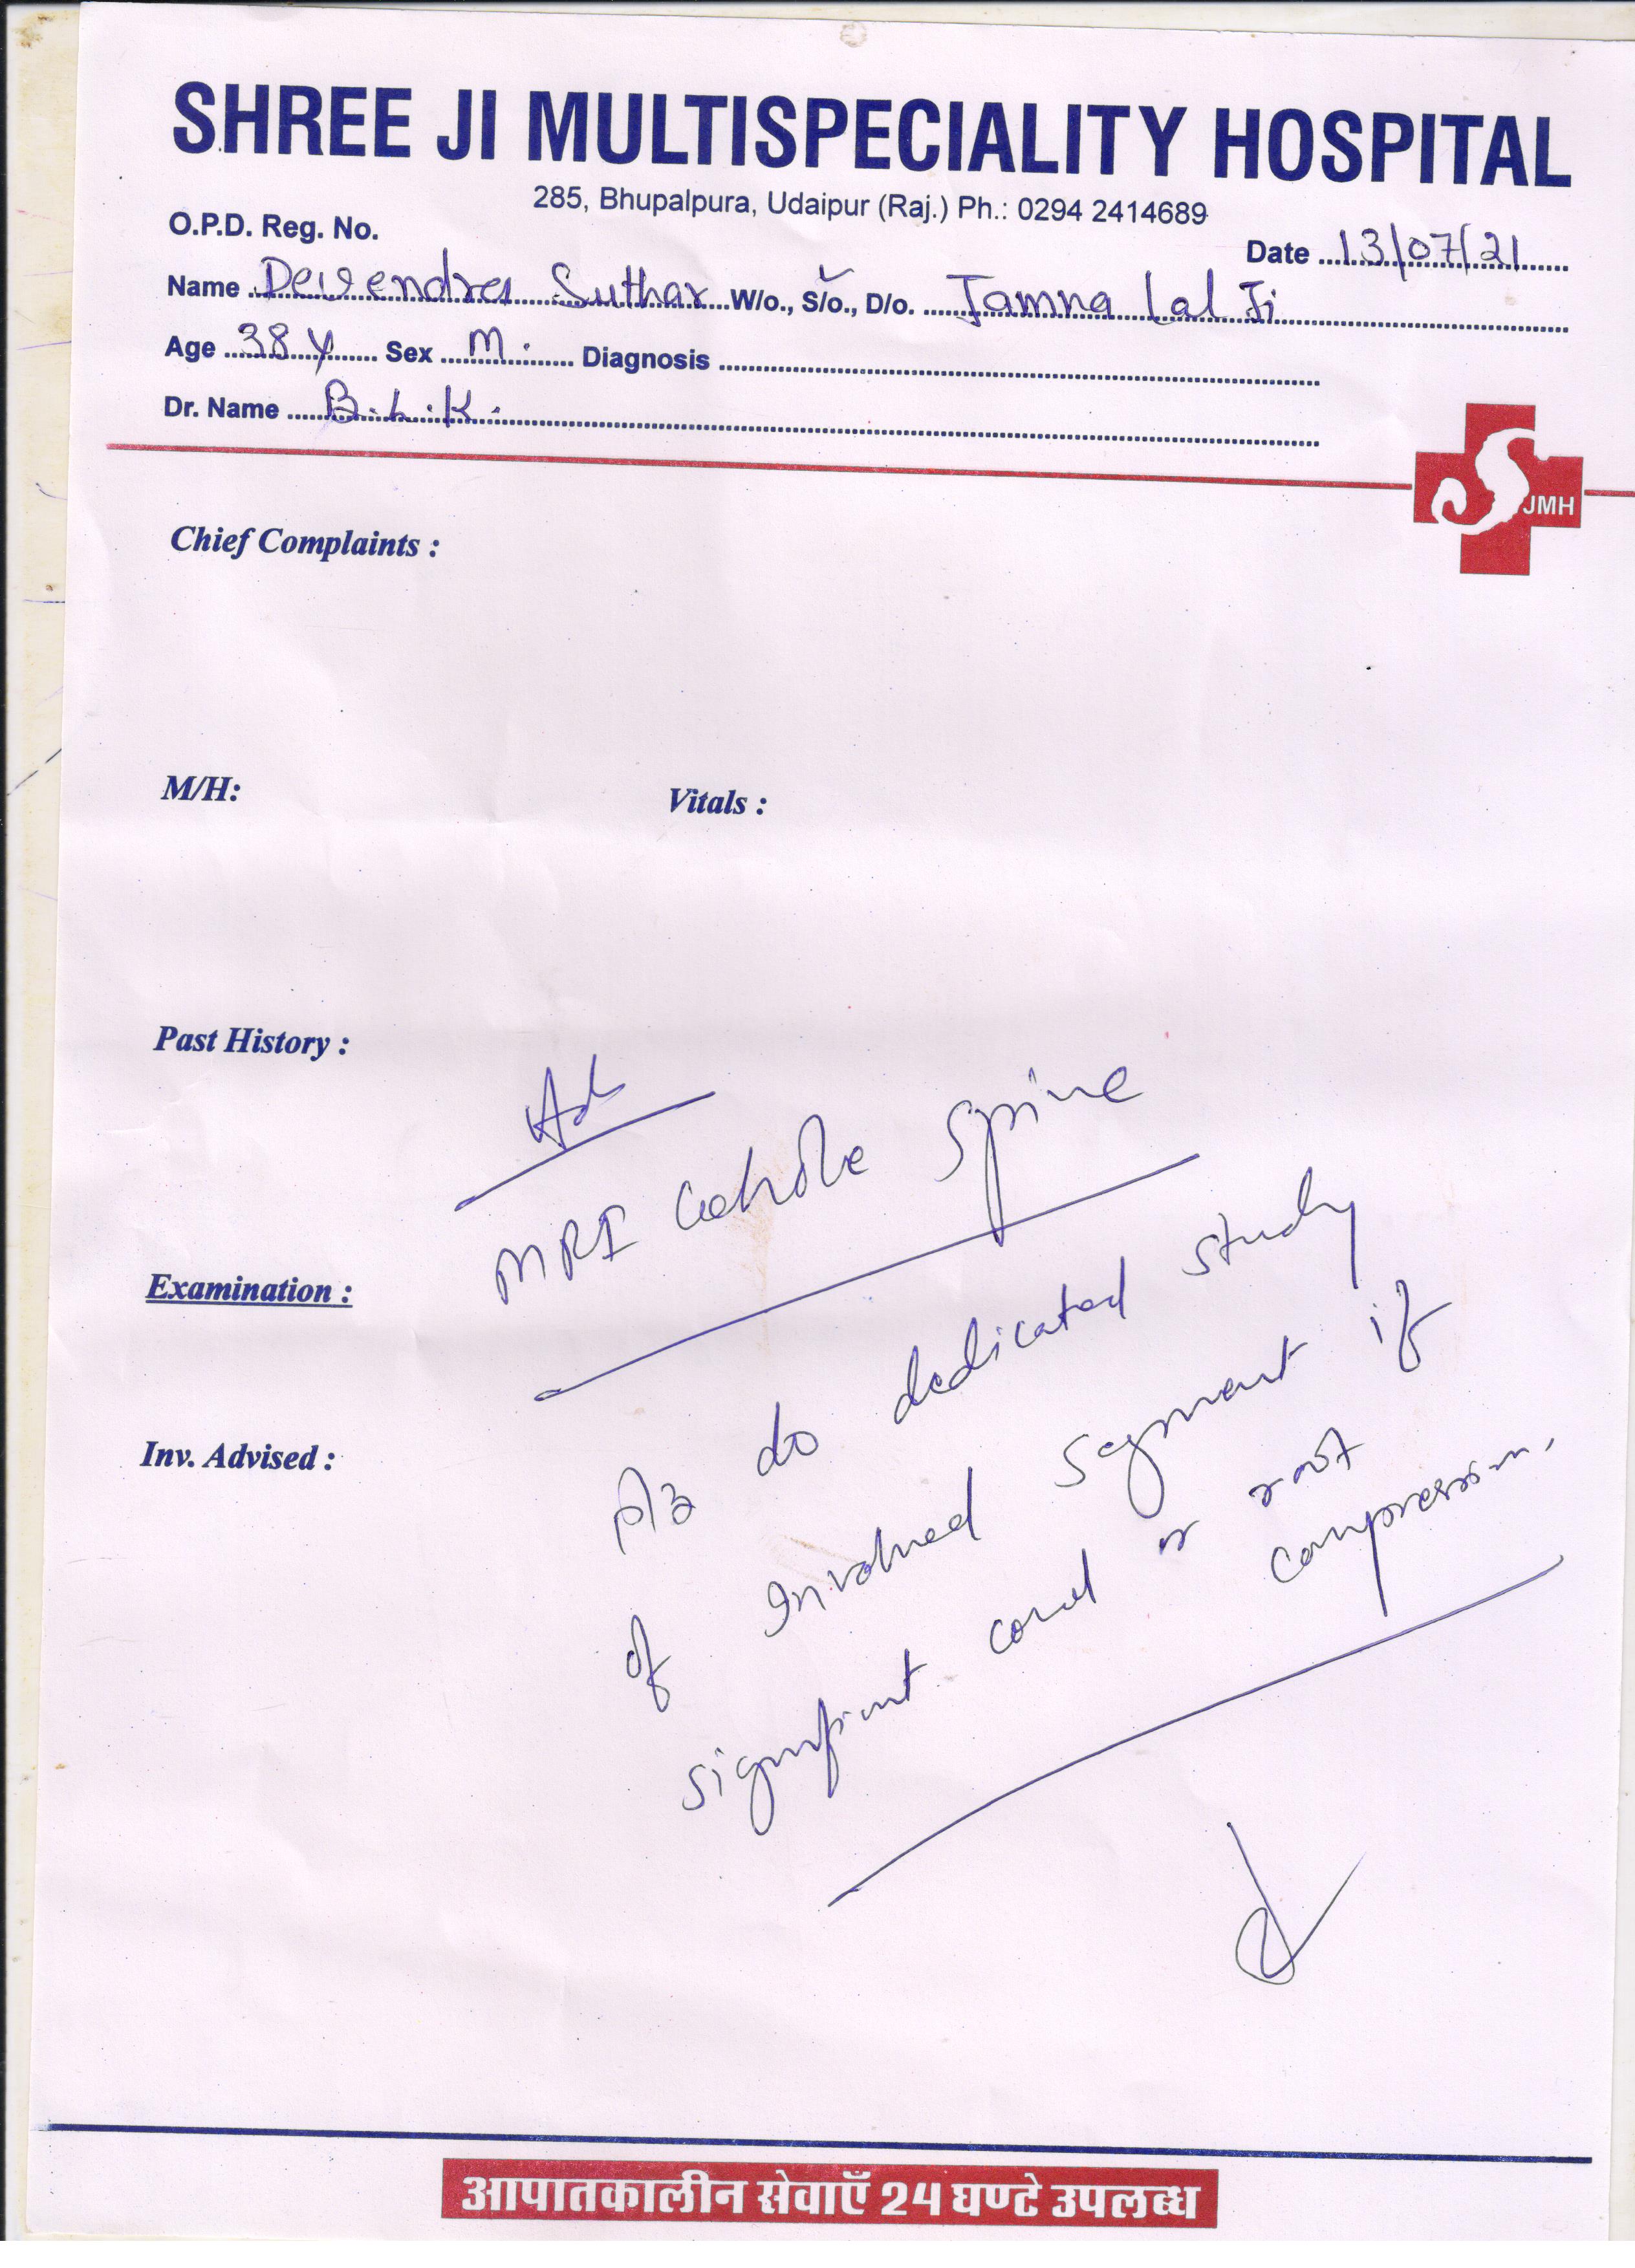 SHREE JI MULTISPECIALITY HOSPITAL
285, Bhupalpura, Udaipur (Raj.) Ph.: 0294 2414689
O.P.D. Reg. No.
Date 13/07/21
Name Devendra Suthar W/o., S/o., D/o. Jamna Lal Ji
Age 38 y Sex M. Diagnosis
Dr. Name B.L.K.
JMH
Chief Complaints :
M/H: Vitals :
Past History :
Ad
MRI whole spine
Examination :
Plz do dedicated study
Inv. Advised :
of involved segment if
significant cord or root
compression.
आपातकालीन सेवाएँ 24 घण्टे उपलब्ध